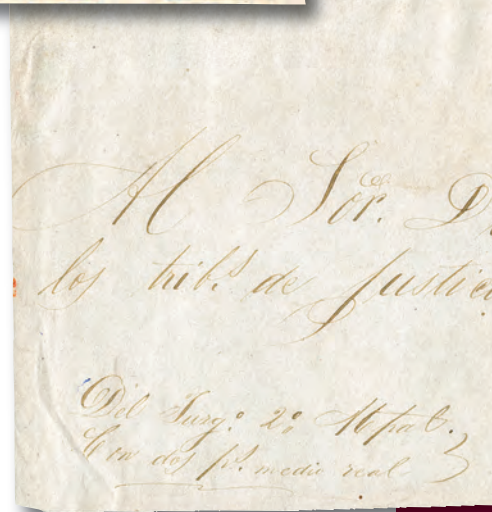 Al Sor. D
los trib.s de Justici
Del Juzg.º 2º Mpal.
Con dos p.s medio real